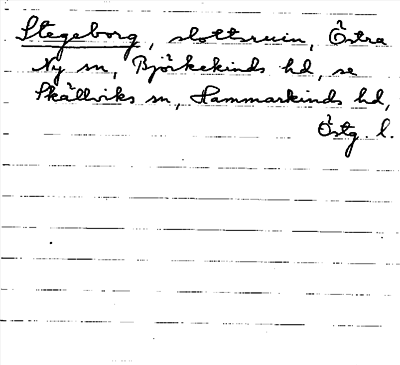 Stegeborg, slottsruin, Östra
Ny sn, Björkekinds hd, se
Skällviks sn, Hammarkinds hd,
Östg. l.